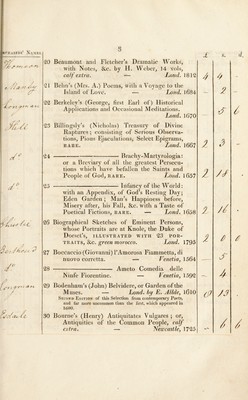 3
PURCHASERS' NAMES.
£ s. d.
20 Beaumont and Fletcher's Dramatic Works,
with Notes, &c. by H. Weber, 14 vols,
calf extra. — Lond. 1812 4 4
21 Behn's (Mrs. A.) Poems, with a Voyage to the
Island of Love. — Lond. 1684 - 2 -
22 Berkeley's (George, first Earl of) Historical
Applications and Occasional Meditations.
Lond. 1670 5 6
23 Billingsly's (Nicholas) Treasury of Divine
Raptures; consisting of Serious Observa-
tions, Pious Ejaculations, Select Epigrams,
RARE. Lond. 1667 2 3
24 ——— Brachy-Martyrologia:
or a Breviary of all the greatest Persecu-
tions which have befallen the Saints and
People of God, RARE. Lond. 1657 2
25 ——— Infancy of the World:
with an Appendix, of God's Resting Day;
Eden Garden; Man's Happiness before,
Misery after, his Fall, &c. with a Taste of
Poetical Fictions, RARE. — Lond. 1658 2
26 Biographical Sketches of Eminent Persons,
whose Portraits are at Knole, the Duke of
Dorset's, ILLUSTRATED WITH 23 POR-
TRAITS, &c. green morocco. Lond. 1795
27 Boccaccio (Giovanni) l'Amorosa Fiammetta, di
nuovo corretta. — Venetia, 1564 - 5
28 ——— Ameto Comedia delle
Ninfe Fiorentine. — Venetia, 1592 - 4
29 Bodenham's (John) Belvidere, or Garden of the
Muses. — Lond. by E. Allde, 1610 13
SECOND EDITION of this Selection from contemporary Poets,
and far more uncommon than the first, which appeared in
1600.
30 Bourne's (Henry) Antiquitates Vulgares; or,
Antiquities of the Common People, calf
extra. — Newcastle, 1725 6 6